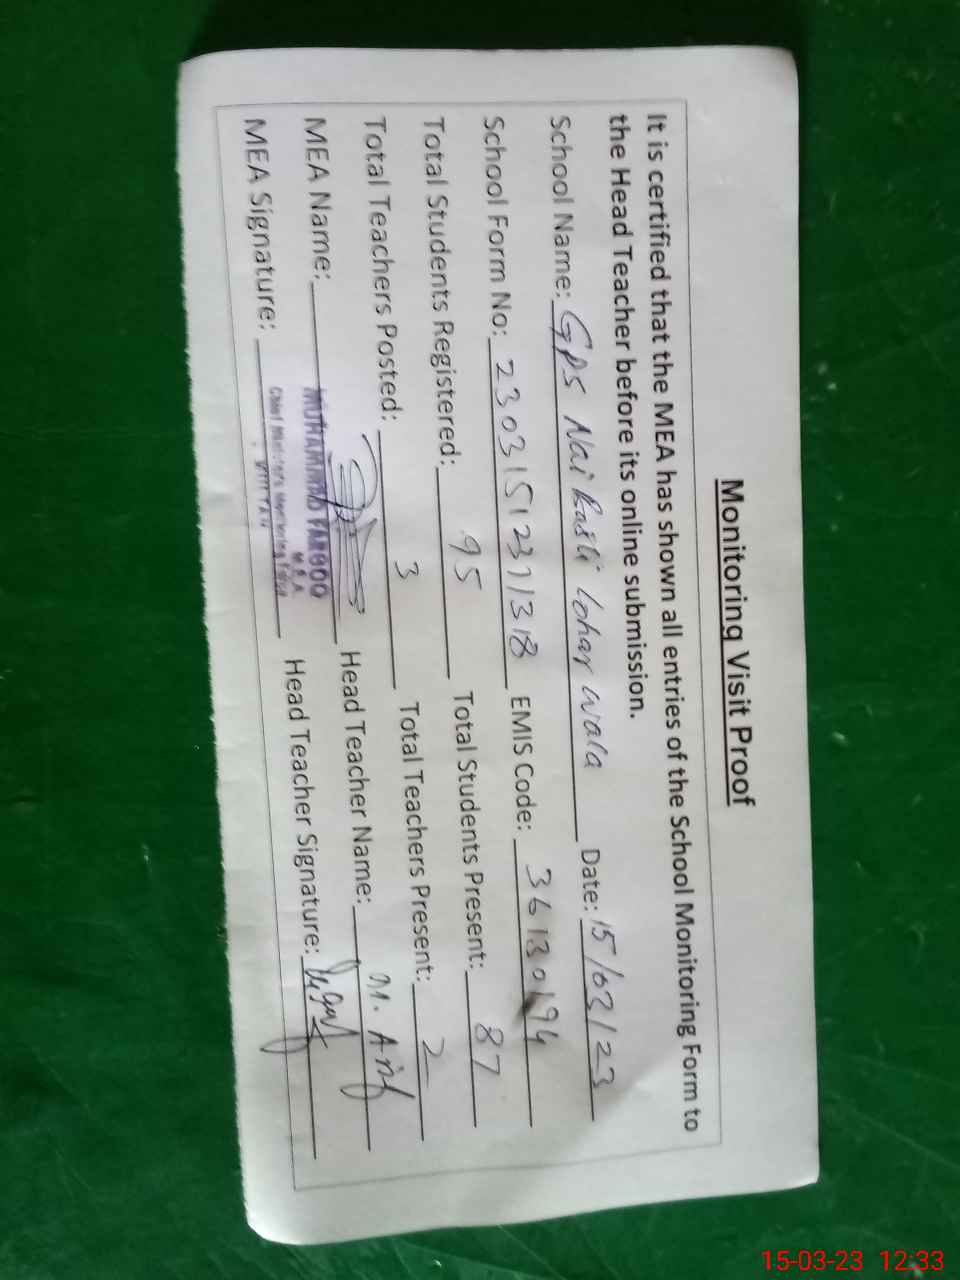 Monitoring Visit Proof
It is certified that the MEA has shown all entries of the School Monitoring Form to
the Head Teacher before its online submission.
School Name: GPS Nai Basti Lohar wala Date: 15/03/23
School Form No: 23031512371318 EMIS Code: 36130194
Total Students Registered: 95 Total Students Present: 87
Total Teachers Posted: 3 Total Teachers Present: 2
MEA Name: MUHAMMAD FAROOQ Head Teacher Name: M. Arif
M.E.A
MEA Signature: Chief Minister's Monitoring Force Head Teacher Signature:
15-03-23 12:33